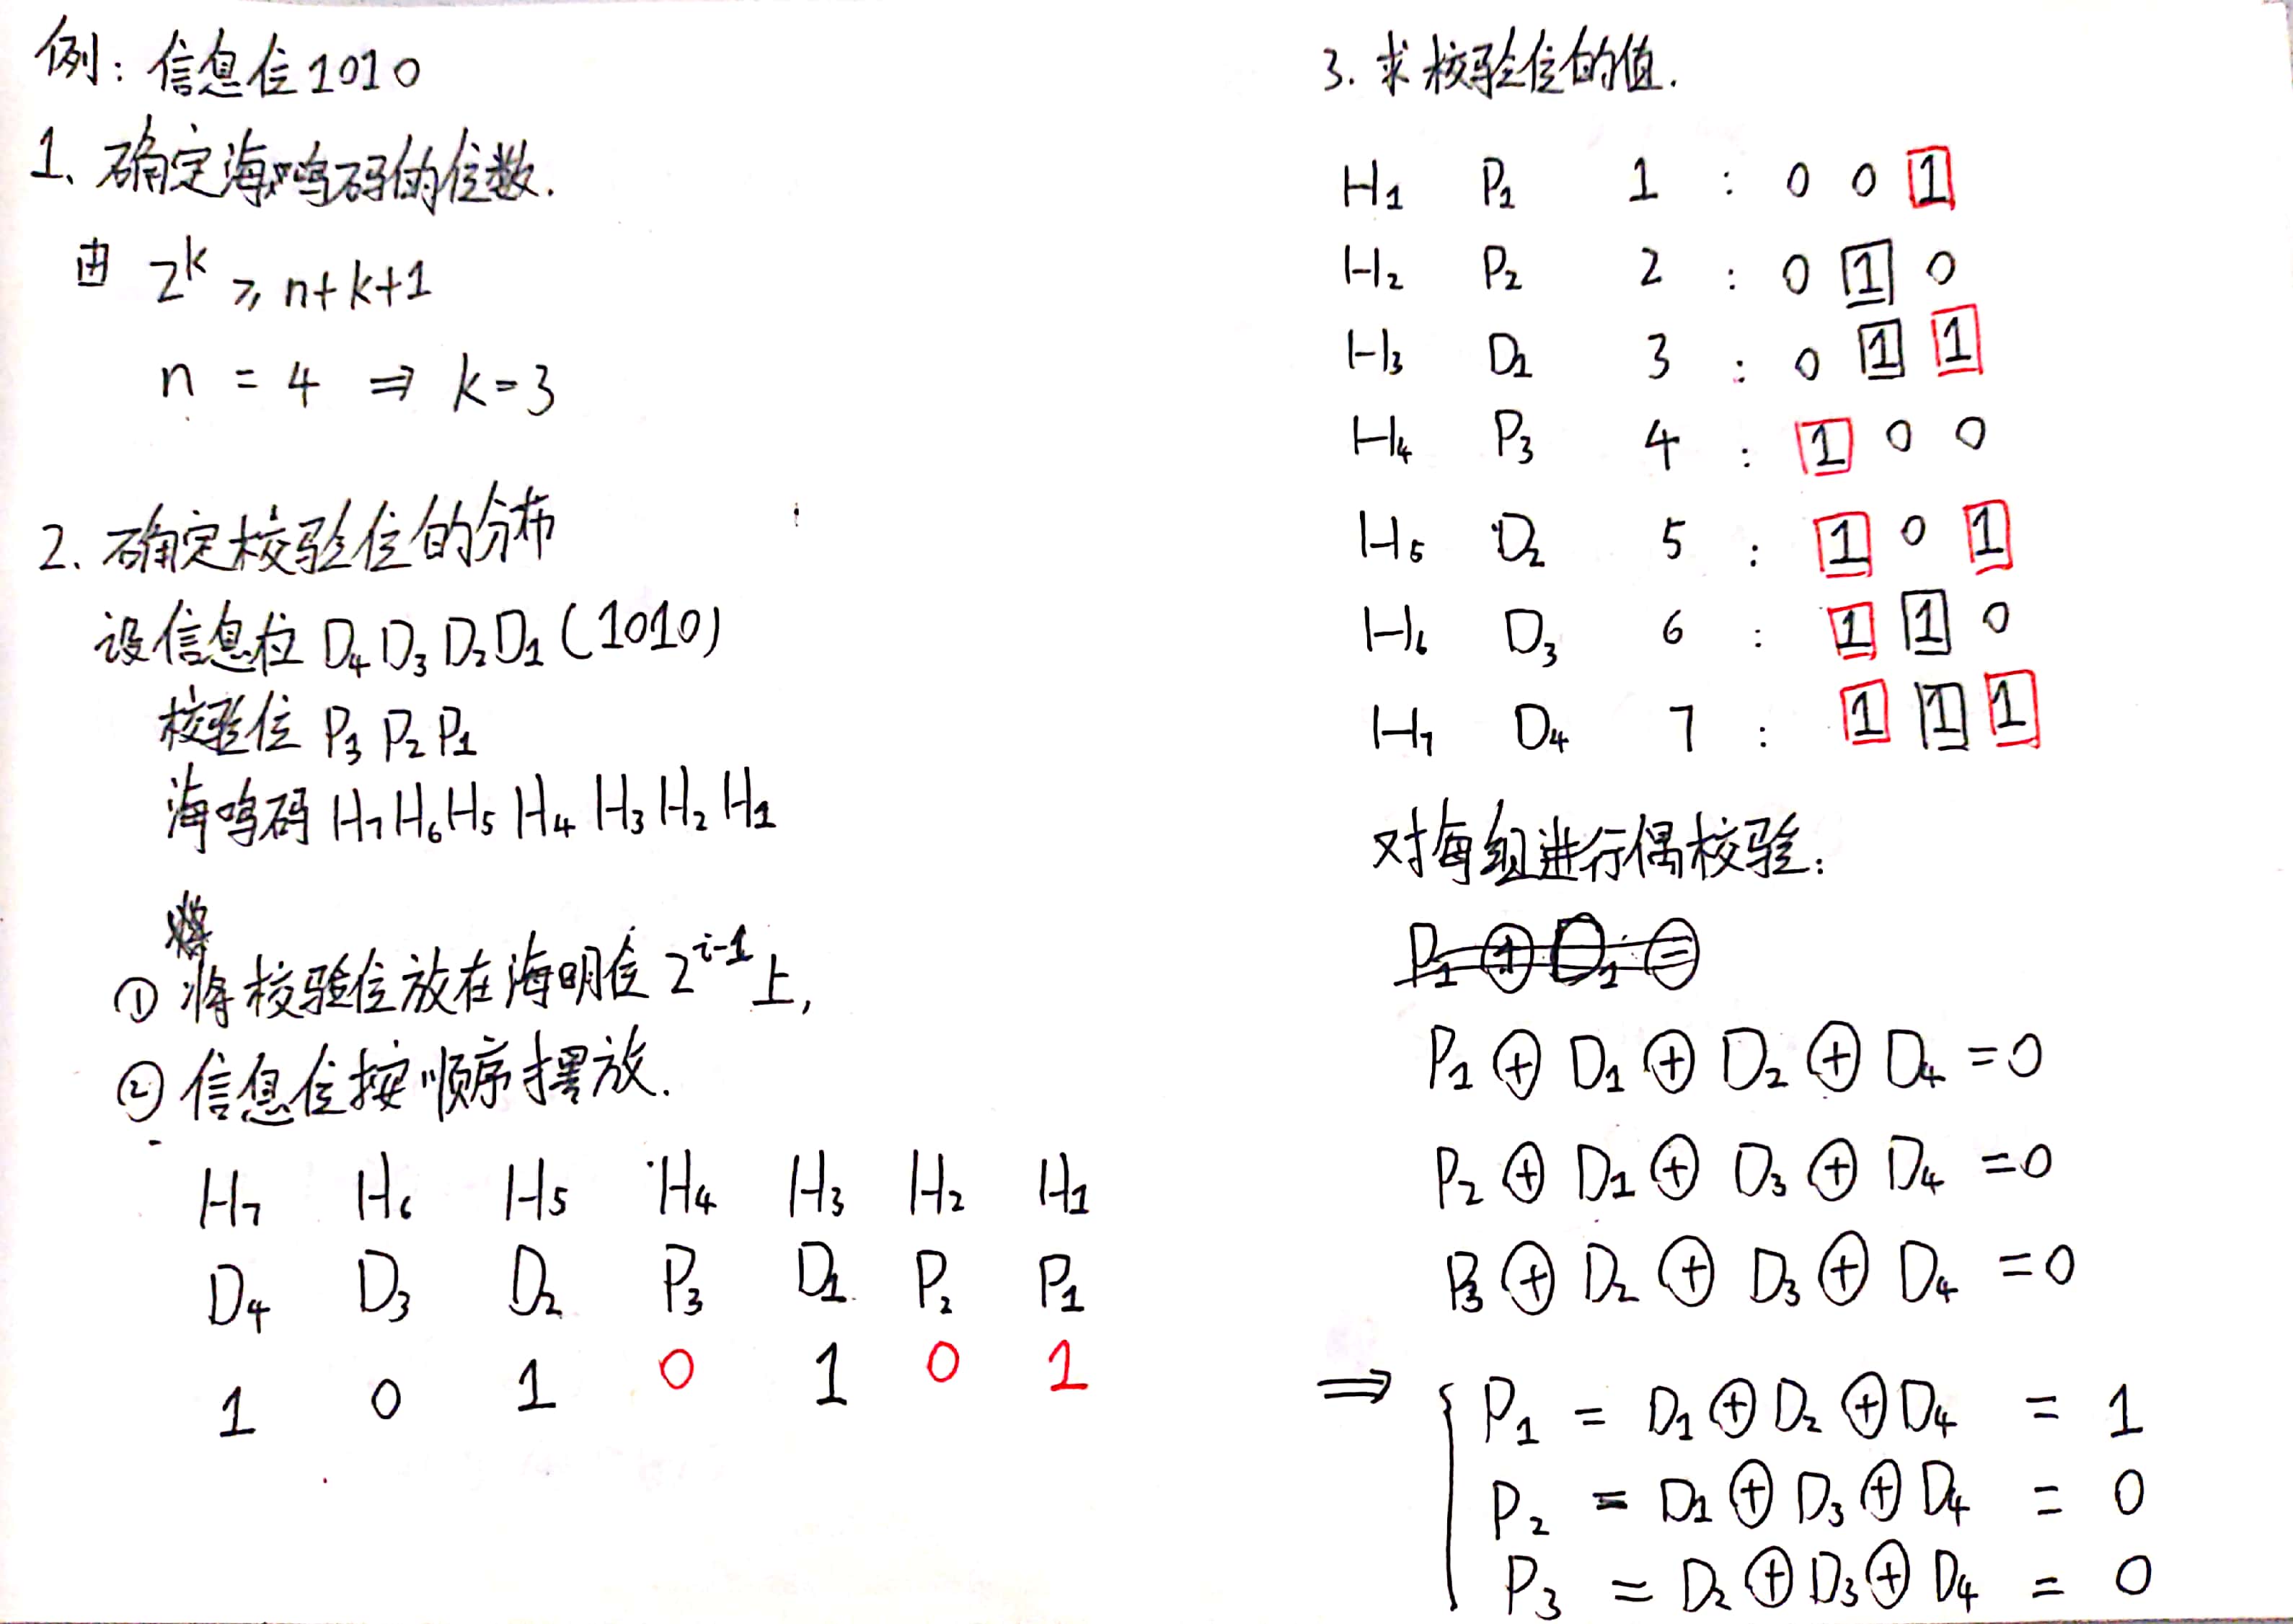 例：信息位1010
1、确定海鸣码的位数.
由 2^k ≥ n+k+1
n = 4 ⇒ k=3
2、确定校验位的分布
设信息位 D₄D₃D₂D₁(1010)
校验位 P₃P₂P₁
海鸣码 H₇H₆H₅H₄H₃H₂H₁
① 将校验位放在海明位 2^{i-1} 上,
② 信息位按顺序摆放.
H₇ H₆ H₅ H₄ H₃ H₂ H₁
D₄ D₃ D₂ P₃ D₁ P₂ P₁
1 0 1 0 1 0 1
3. 求校验位的值.
H₁ P₁ 1 : 0 0 1
H₂ P₂ 2 : 0 1 0
H₃ D₁ 3 : 0 1 1
H₄ P₃ 4 : 1 0 0
H₅ D₂ 5 : 1 0 1
H₆ D₃ 6 : 1 1 0
H₇ D₄ 7 : 1 1 1
对每组进行偶校验：
P₁ ⊕ D₁ =
P₁ ⊕ D₁ ⊕ D₂ ⊕ D₄ = 0
P₂ ⊕ D₁ ⊕ D₃ ⊕ D₄ = 0
P₃ ⊕ D₂ ⊕ D₃ ⊕ D₄ = 0
⇒ { P₁ = D₁ ⊕ D₂ ⊕ D₄ = 1
P₂ = D₁ ⊕ D₃ ⊕ D₄ = 0
P₃ = D₂ ⊕ D₃ ⊕ D₄ = 0